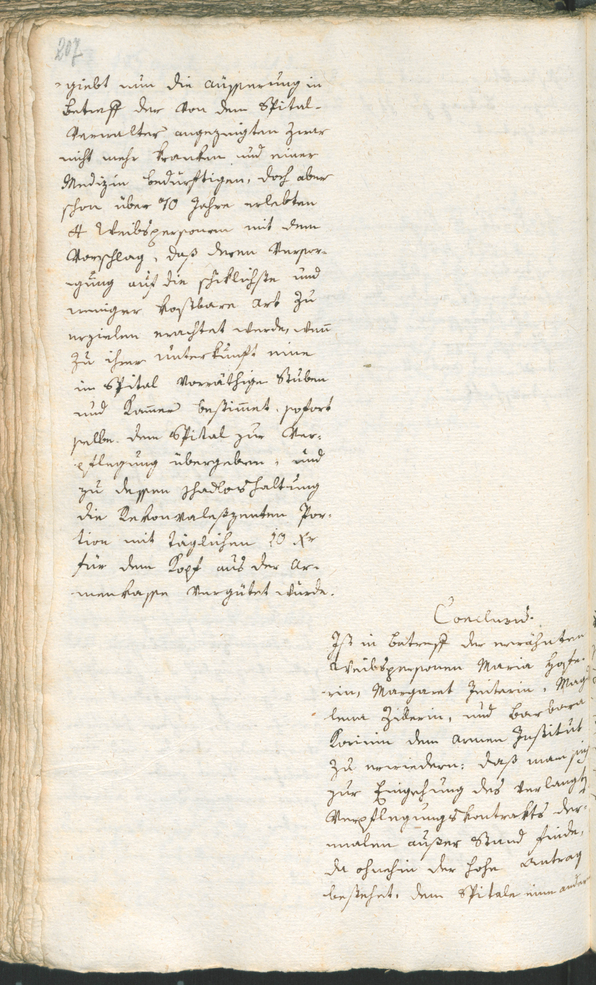 207
giebt nun die äusserung in
Betreff der von dem Spital-
Verwalter angezeigten zwar
nicht mehr kranken und einer
Medizin bedürftigen, doch aber
schon über 70 Jahre erlebten
4 Weibspersonen mit dem
Vorschlag, daß deren Versor-
gung auf die schiklichste und
weniger kostbare Art zu
erzielen erachtet werde, wenn
zu ihrer Unterkunft eine
im Spital vorräthige Stuben
und Kammer bestimmet, sofort
selbe dem Spital zur Ver-
pflegung übergeben, und
zu dessen schadloshaltung
die Rekonvaleszenten Por-
tion mit täglichen 10 Xr
für dem Kopf aus der Ar-
menkasse vergütet würde.
Conclusum.
Ist in betreff der erwähnten
Weibspersonen Maria
Margaret Mag-
lena und Barbara
dem armen Institut
zu erwiedern: daß man sich
zur Eingehung des verlangt
Verpflegungskontrakts der-
malen ausser Stand finde,
da ohnehin der hohe Antrag
bestehet, dem Spitale eine ander